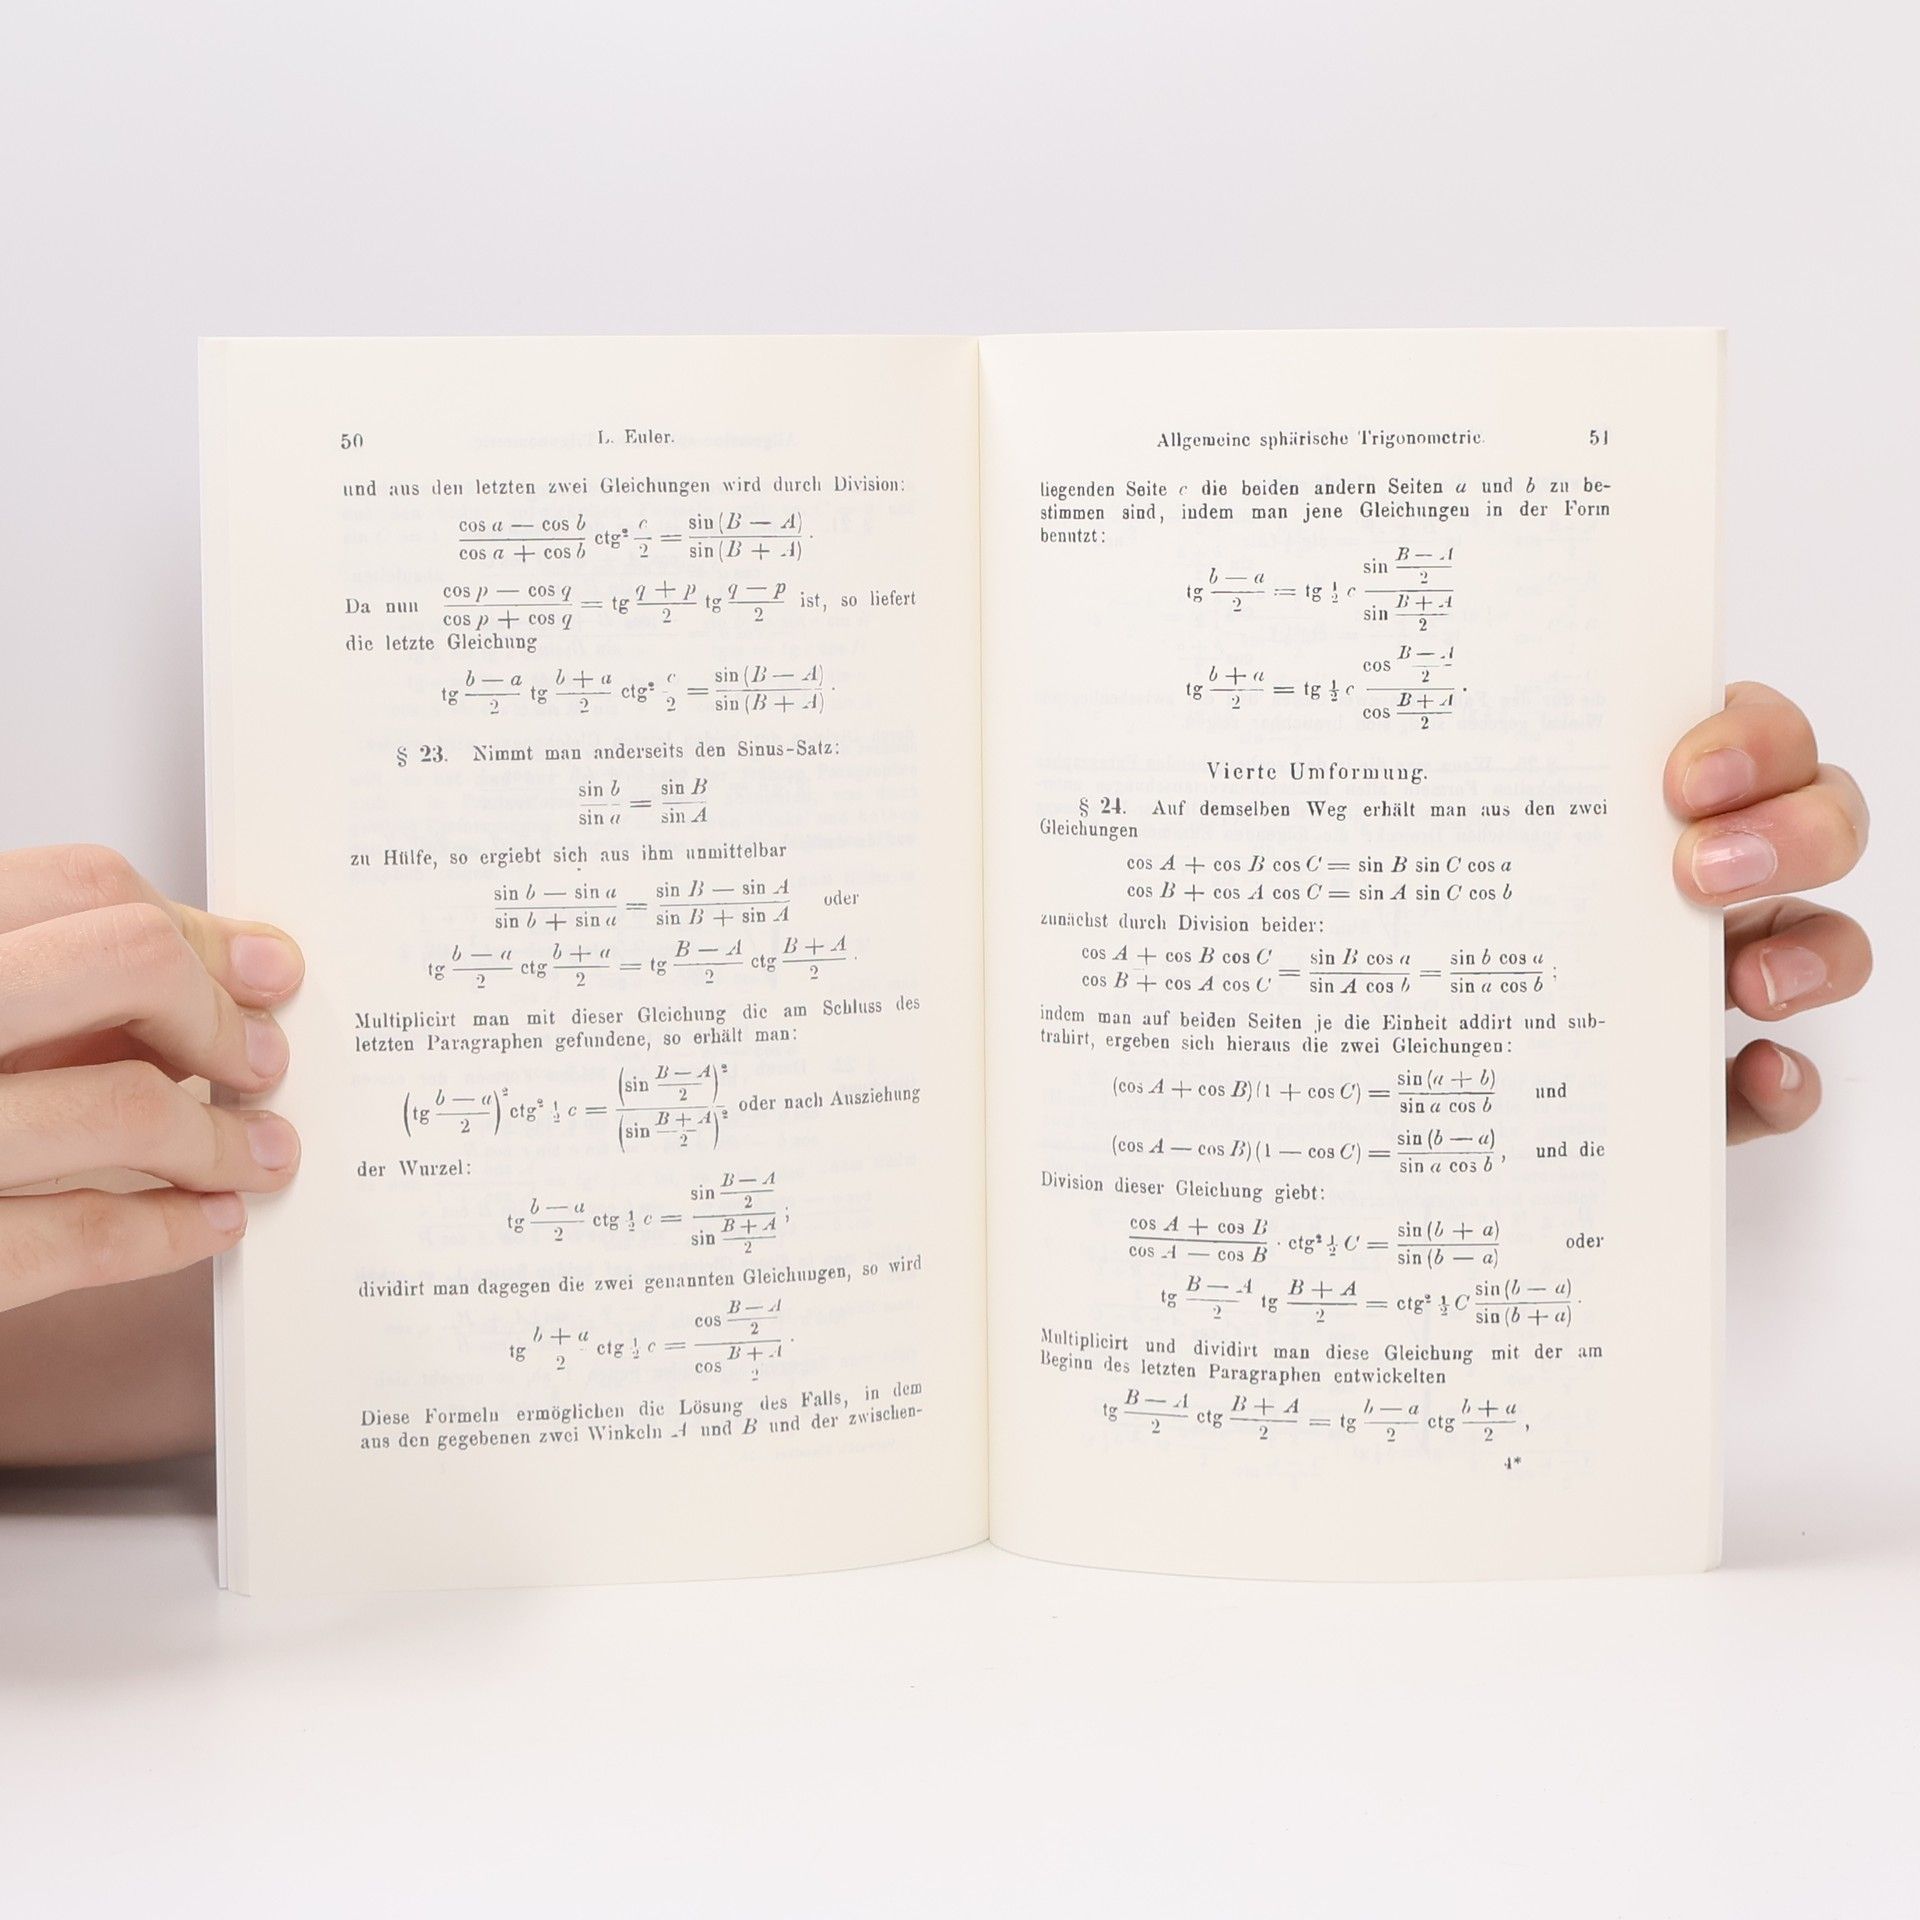 50 L. Euler.
und aus den letzten zwei Gleichungen wird durch Division:
(cos a — cos b)/(cos a + cos b) ctg² c/2 = sin (B — A)/sin (B + A) .
Da nun (cos p — cos q)/(cos p + cos q) = tg (q + p)/2 tg (q — p)/2 ist, so liefert
die letzte Gleichung
tg (b — a)/2 tg (b + a)/2 ctg² c/2 = sin (B — A)/sin (B + A) .
§ 23. Nimmt man anderseits den Sinus-Satz:
sin b/sin a = sin B/sin A
zu Hülfe, so ergiebt sich aus ihm unmittelbar
(sin b — sin a)/(sin b + sin a) = (sin B — sin A)/(sin B + sin A) oder
tg (b — a)/2 ctg (b + a)/2 = tg (B — A)/2 ctg (B + A)/2 .
Multiplicirt man mit dieser Gleichung die am Schluss des
letzten Paragraphen gefundene, so erhält man:
(tg (b — a)/2)² ctg² ½ c = (sin (B — A)/2)²/(sin (B + A)/2)² oder nach Ausziehung
der Wurzel:
tg (b — a)/2 ctg ½ c = sin (B — A)/2 / sin (B + A)/2 ;
dividirt man dagegen die zwei genannten Gleichungen, so wird
tg (b + a)/2 ctg ½ c = cos (B — A)/2 / cos (B + A)/2 .
Diese Formeln ermöglichen die Lösung des Falls, in dem
aus den gegebenen zwei Winkeln A und B und der zwischen-
Allgemeine sphärische Trigonometrie. 51
liegenden Seite c die beiden andern Seiten a und b zu be-
stimmen sind, indem man jene Gleichungen in der Form
benutzt:
tg (b — a)/2 = tg ½ c sin (B — A)/2 / sin (B + A)/2
tg (b + a)/2 = tg ½ c cos (B — A)/2 / cos (B + A)/2 .
Vierte Umformung.
§ 24. Auf demselben Weg erhält man aus den zwei
Gleichungen
cos A + cos B cos C = sin B sin C cos a
cos B + cos A cos C = sin A sin C cos b
zunächst durch Division beider:
(cos A + cos B cos C)/(cos B + cos A cos C) = (sin B cos a)/(sin A cos b) = (sin b cos a)/(sin a cos b) ;
indem man auf beiden Seiten je die Einheit addirt und sub-
trahirt, ergeben sich hieraus die zwei Gleichungen:
(cos A + cos B)(1 + cos C) = sin (a + b)/(sin a cos b) und
(cos A — cos B)(1 — cos C) = sin (b — a)/(sin a cos b) , und die
Division dieser Gleichung giebt:
(cos A + cos B)/(cos A — cos B) · ctg² ½ C = sin (b + a)/sin (b — a) oder
tg (B — A)/2 tg (B + A)/2 = ctg² ½ C sin (b — a)/sin (b + a) .
Multiplicirt und dividirt man diese Gleichung mit der am
Beginn des letzten Paragraphen entwickelten
tg (B — A)/2 ctg (B + A)/2 = tg (b — a)/2 ctg (b + a)/2 ,
4*